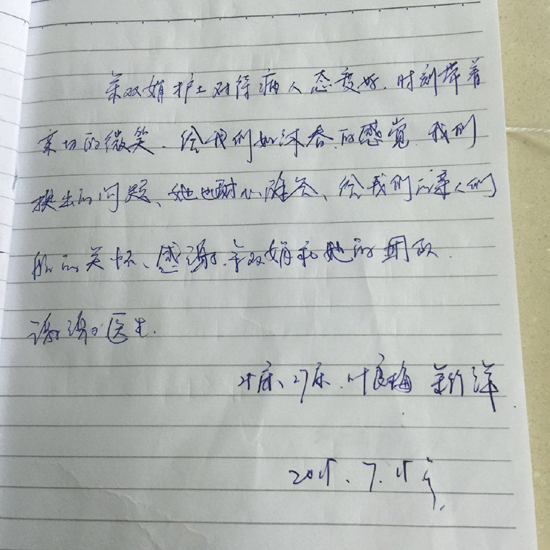 余双娟护士对待病人态度好.时刻带着
亲切的微笑、给我们如沐春的感觉.我们
提出的问题、她也耐心解答、给我们的亲人们
般的关怀、感谢余双娟和她的团队.
谢谢医生.
床、27床.叶良梅
2015.7.15